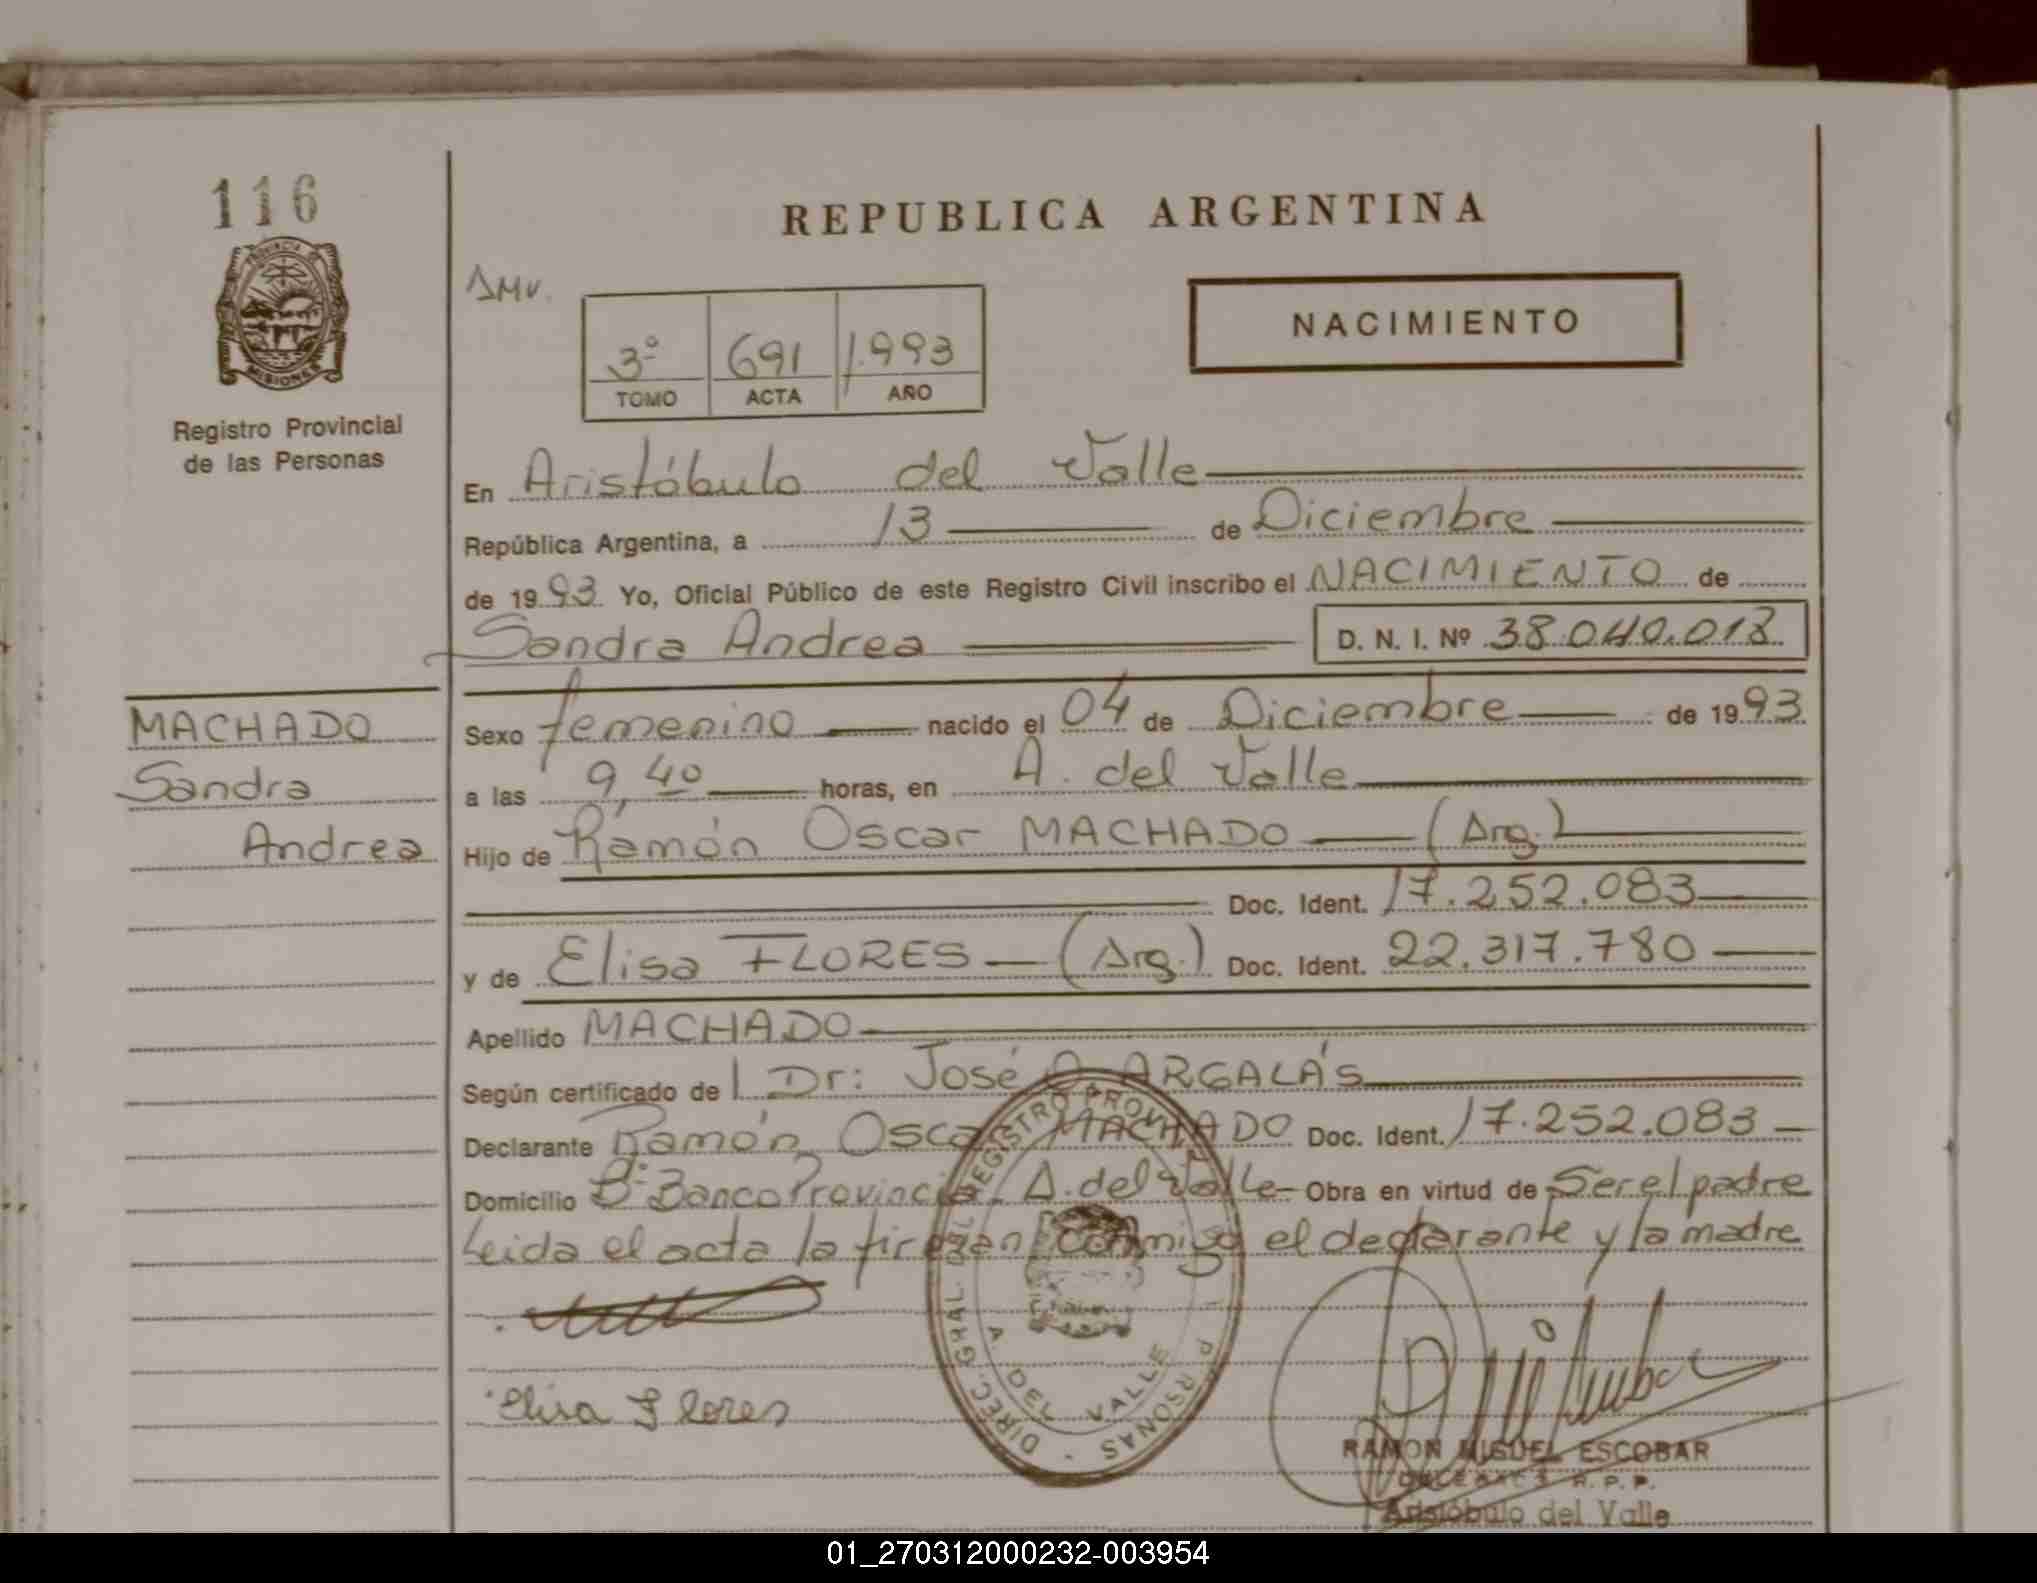 116
PROVINCIA DE
MISIONES
Registro Provincial
de las Personas
REPUBLICA ARGENTINA
NACIMIENTO
3º 691 1.993
TOMO ACTA AÑO
En Aristóbulo del Valle
República Argentina, a 13 de Diciembre
de 1993 Yo, Oficial Público de este Registro Civil inscribo el NACIMIENTO de
Sandra Andrea D. N. I. Nº 38.040.018
MACHADO
Sandra
Andrea
Sexo femenino nacido el 04 de Diciembre de 1993
a las 9,40 horas, en A. del Valle
Hijo de Ramón Oscar MACHADO (Arg.)
Doc. Ident. 17.252.083
y de Elisa FLORES (Arg.) Doc. Ident. 22.317.780
Apellido MACHADO
Según certificado de Dr: José ARGALÁS
Declarante Ramón Oscar MACHADO Doc. Ident. 17.252.083
Domicilio Bº Banco Provincia A. del Valle Obra en virtud de Ser el padre
Leida el acta la firman conmigo el declarante y la madre
Elisa Flores
DIREC. GRAL. DEL REGISTRO PROV. PERSONAS
A. DEL VALLE
RAMON MIGUEL ESCOBAR
R. P. P.
Aristóbulo del Valle
01_270312000232-003954